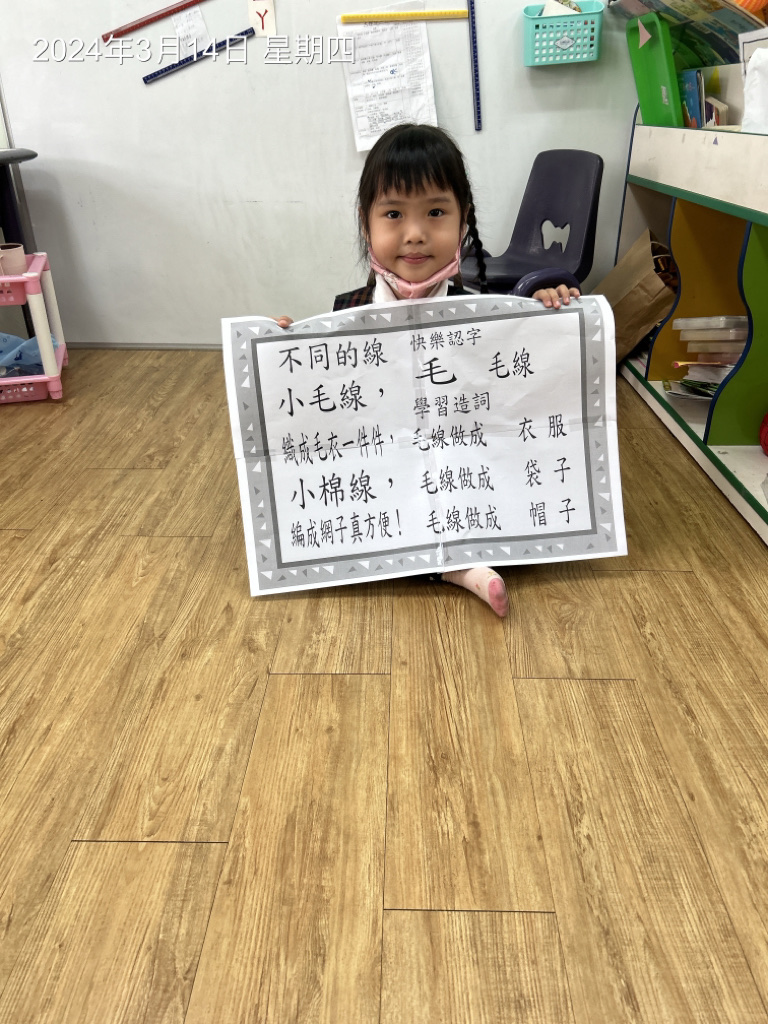 2024年3月14日 星期四
Y
不同的線
小毛線，
織成毛衣一件件，
小棉線，
編成網子真方便！
快樂認字
毛 毛線
學習造詞
毛線做成 衣服
毛線做成 袋子
毛線做成 帽子